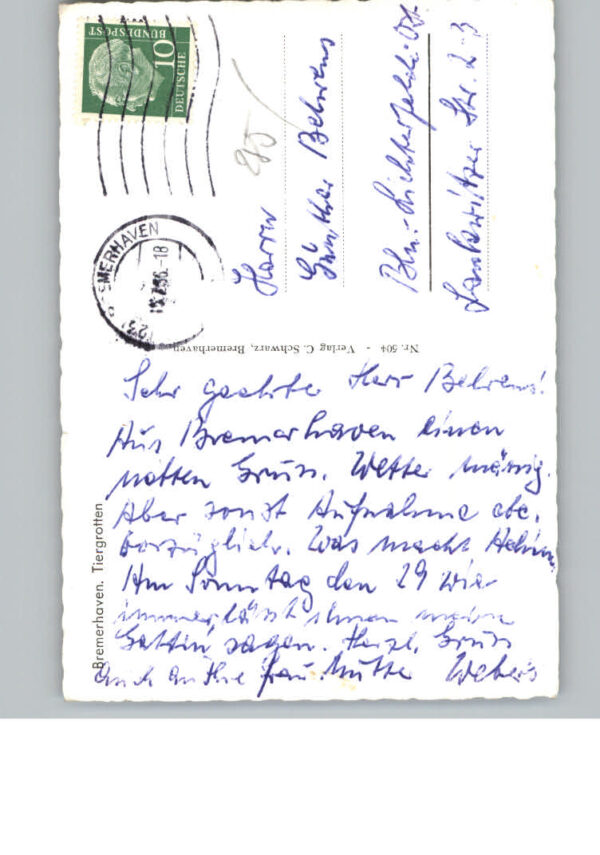 DEUTSCHE
BUNDESPOST
10
BREMERHAVEN
-18
Herrn
Günther Behrens
Bln.-Lichterfelde-Ost
Lankwitzer Str. 2-3
Nr. 504 - Verlag C. Schwarz, Bremerhaven
Bremerhaven. Tiergrotten
Sehr geehrter Herr Behrens!
Aus Bremerhaven einen
netten Gruss. Wetter mässig.
Aber sonst Aufnahme etc.
vorzüglich. Was macht
Am Sonntag den 29 wie
immer lässt ihnen meine
Gattin sagen. Herzl. Gruss
Auch an Ihre Frau Mutter Webers